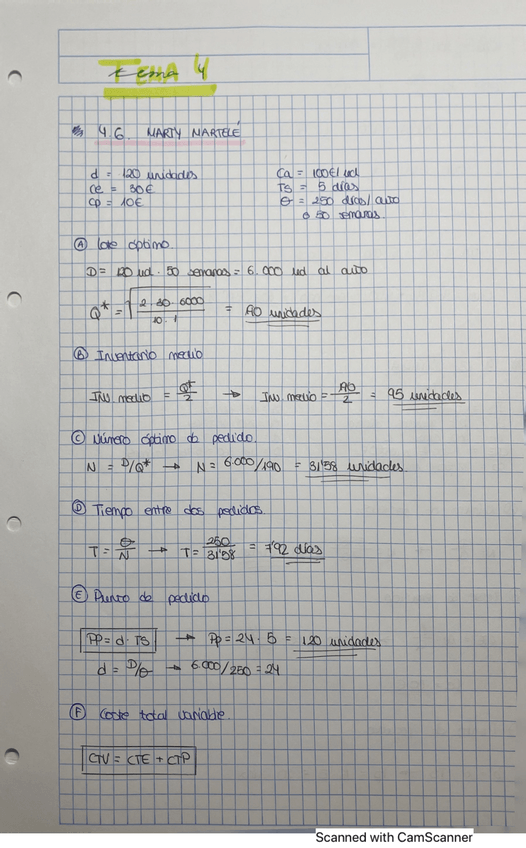 TEMA 4
tema 4
4.6. MARTY MARTELÉ
d = 120 unidades
Ca = 100€/ud
Ce = 30€
TS = 5 días
Cp = 10€
θ = 250 días/año
ó 50 semanas
Ⓐ Lote óptimo
D = 120 ud · 50 semanas = 6.000 ud al año
Q* = √(2·30·6000 / 10·1) = 190 unidades
Ⓑ Inventario medio
Inv. medio = Q*/2 → Inv. medio = 190/2 = 95 unidades
Ⓒ Número óptimo de pedido.
N = D/Q* → N = 6.000/190 = 31'58 unidades
Ⓓ Tiempo entre dos pedidos
T = θ/N → T = 250/31'58 = 7'92 días
Ⓔ Punto de pedido
PP = d · TS → Pp = 24 · 5 = 120 unidades
d = D/θ → 6.000/250 = 24
Ⓕ Coste total variable.
CTV = CTE + CTP
Scanned with CamScanner